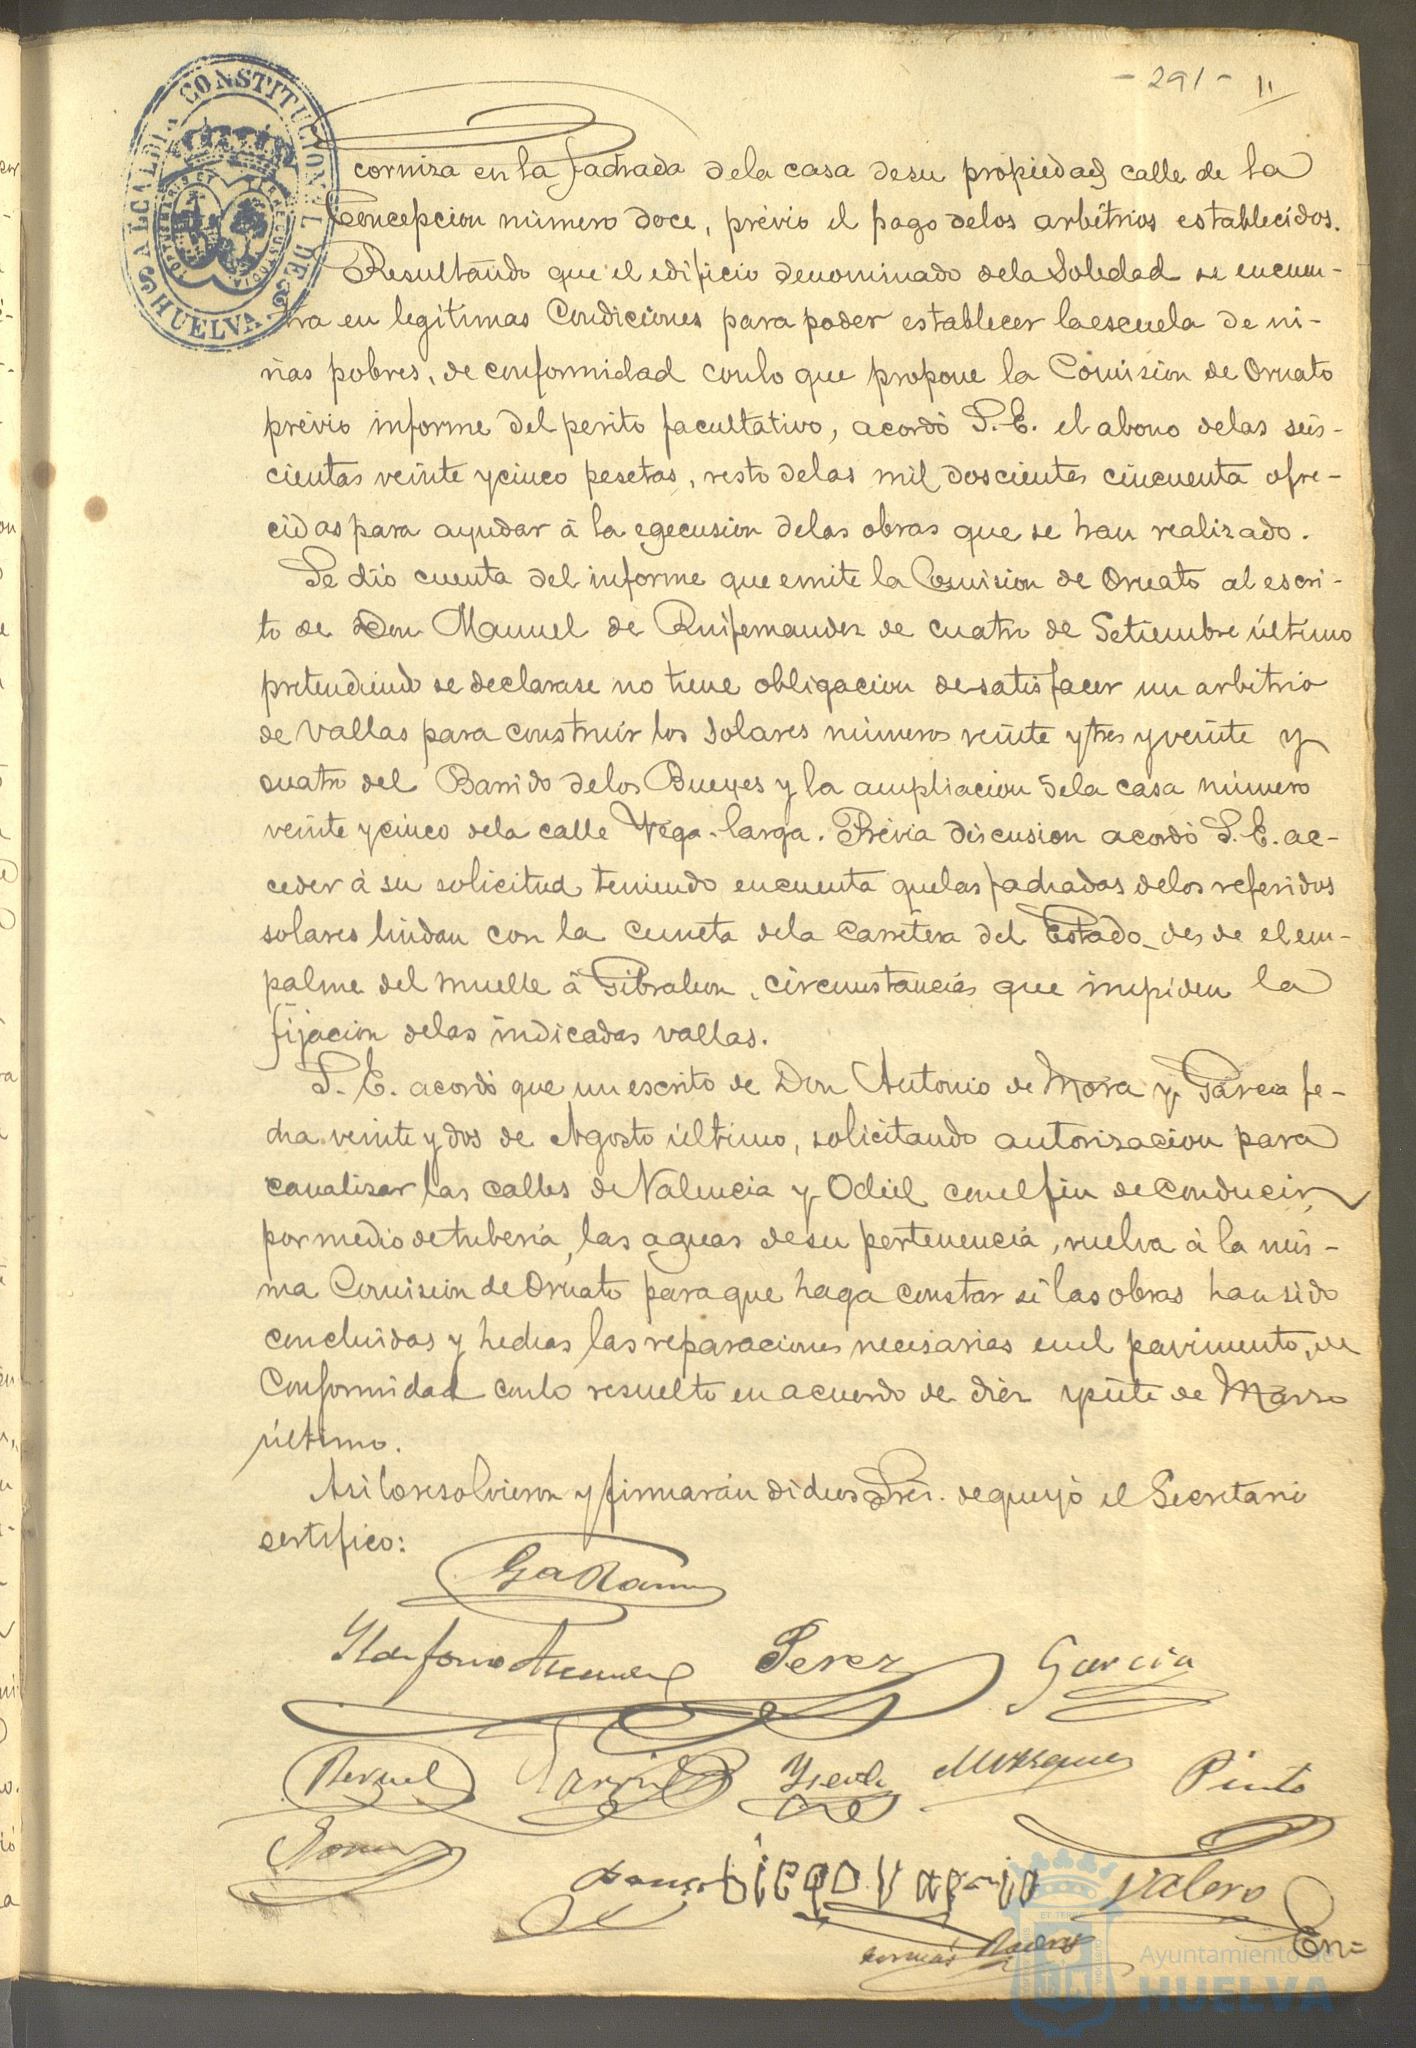 - 291 - 11
ALCALDIA CONSTITUCIONAL DE HUELVA
cornisa en la fachada dela casa desu propiedad calle de la
Concepcion número doce, prévio el pago delos arbitrios establecidos.
Resultando que el edificio denominado dela Soledad se encuen-
tra en legitimas Condiciones para poder establecer laescuela de ni-
ñas pobres, de conformidad conlo que propone la Comision de Ornato
prévio informe del perito facultativo, acordó S. E. el abono delas seis-
cientas veinte ycinco pesetas, resto delas mil doscientas cincuenta ofre-
cidas para ayudar á la egecusion delas obras que se han realizado.
Se dió cuenta del informe que emite la Comision de Ornato al escri-
to de Don Manuel de Ruifernandez de cuatro de Setiembre último
pretendiendo se declarase no tiene obligacion desatisfacer un arbitrio
de vallas para construir los solares números veinte ytres yveinte y
cuatro del Barrido delos Bueyes y la ampliacion dela casa número
veinte ycinco dela calle Vega-larga. Prévia discusion acordó S. E. ac-
ceder á su solicitud teniendo encuenta quelas fachadas delos referidos
solares lindan con la cuneta dela Carretera del Estado desde el em-
palme del muelle á Gibraleon, circunstancias que impiden la
fijacion delas indicadas vallas.
S. E. acordó que un escrito de Don Antonio de Mora y Garcia fe-
cha veinte y dos de Agosto último, solicitando autorizacion para
canalizar las calles de Valencia y Odiel conelfin deconducir,
pormedio detuberia, las aguas desu pertenencia, vuelva á la mis-
ma Comision de Ornato paraque haga constar si las obras han sido
concluidas y hechas las reparaciones necesarias enel pavimento, de
Conformidad conlo resuelto en acuerdo de diez ysiete de Marzo
último.
Asiloresolvieron y firmarán dichos Sres. dequeyó el Secretario
certifico:
Perez Garcia
Pinto
Diego Garcia Valero
En=
Ayuntamiento de
HUELVA